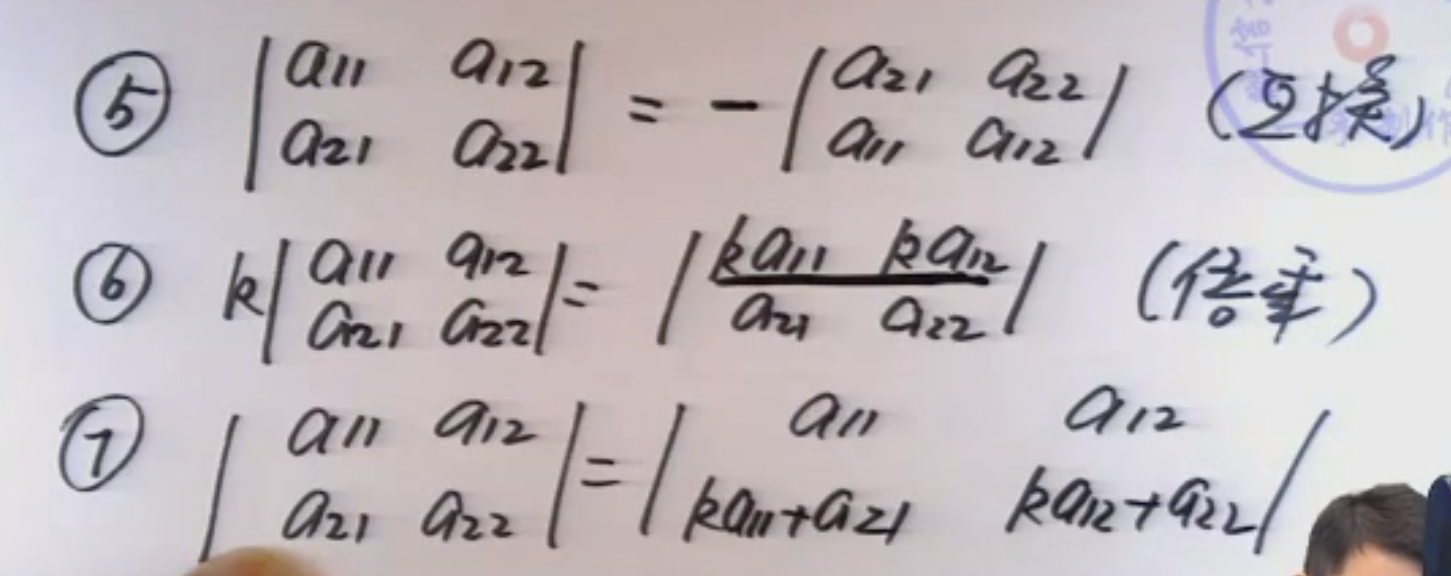 ⑤ |a11 a12; a21 a22| = -|a21 a22; a11 a12| (互换)
⑥ k|a11 a12; a21 a22| = |ka11 ka12; a21 a22| (倍乘)
⑦ |a11 a12; a21 a22| = |a11 a12; ka11+a21 ka12+a22|